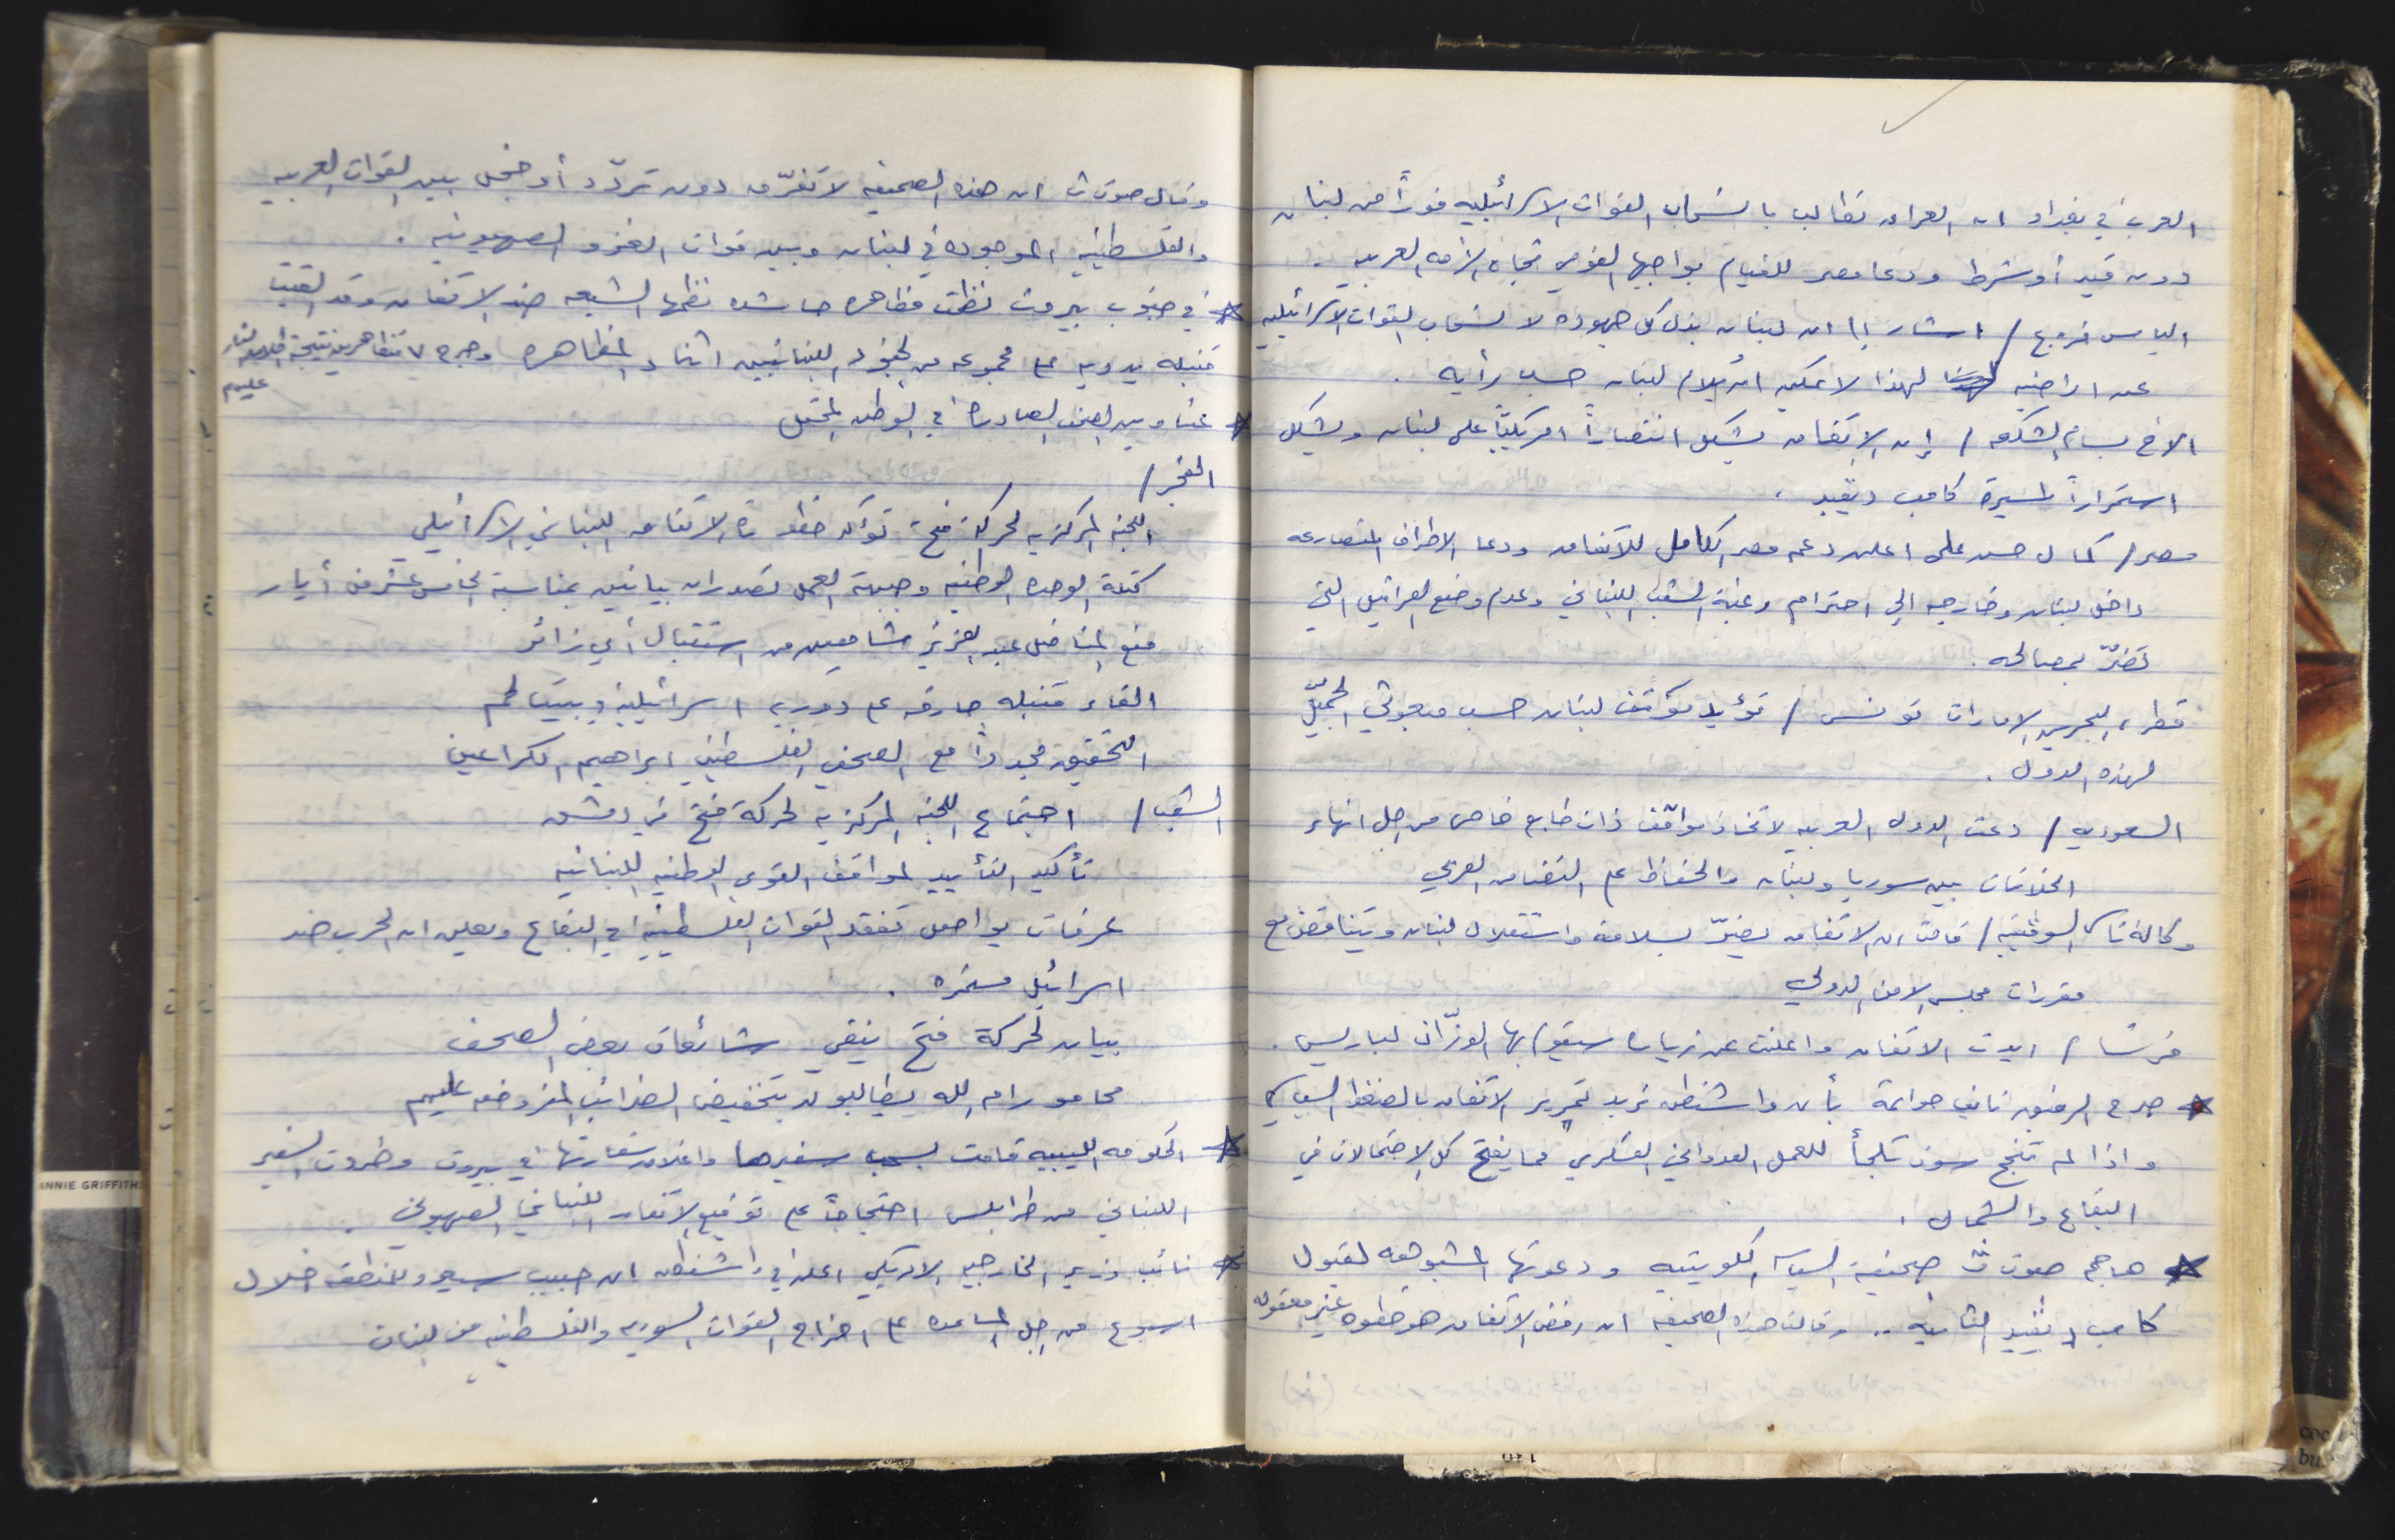 العرب في بغداد ان العراق تطالب بانسحاب القوات الاسرائيليه فوراً من لبنان
دون قيد أو شرط ودعا مصر للقيام بواجبها القومي تجاه الأمه العربيه .
الياس فريج / اشار الى ان لبنان بذل كل جهوده لانسحاب القوات الاسرائيليه
عن اراضيه لهذا لا يمكن ان يُلام لبنان حسب رأيه .
الاخ بسام الشكعه / إن الاتفاق يشكل انتصاراً امريكياً على لبنان ويشكل
استمراراً لمسيرة كامب ديفيد .
مصر / كمال حسن علي اعلن دعم مصر الكامل للاتفاق ودعا الاطراف المتصارعه
داخل لبنان وخارجه الى احترام رغبة الشعب اللبناني وعدم وضع العراقيل التي
تضرّ بمصالحه .
قطر، البحرين الامارات تونس / تؤيد موقف لبنان حسب مبعوثي الجميّل
لهذه الدول .
السعوديه / دعت الدول العربيه لاتخاذ مواقف ذات طابع خاص من اجل انهاء
الخلافات بين سوريا ولبنان والحفاظ على التضامن العربي
وكالة تاس السوفتيه / قالت ان الاتفاق يضرّ بسلامة واستقلال لبنان ويتناقض مع
مقررات مجلس الامن الدولي
فرنسا / ايدت الاتفاق واعلنت عن زياره سيقوم بها الوزّان لباريس .
* صرح الرفيق نايف حواتمة بأن واشنطن تريد تمرير الاتفاق بالضغط السياسي
واذا لم تنجح سوف تلجأ للعمل العدواني العسكري مما يفتح كل الاحتمالات في
البقاع والشمال .
* هاجم صوت ث صحيفة السياسه الكويتيه ودعوتها المشبوهه لقبول
كامب ديفيد الثانيه .. وقالت هذه الصحيفه ان رفض الاتفاق هو خطوه غير معقوله
وقال صوت ث ان هذه الصحيفه لا تفرّق دون تردّد أو خجل بين القوات العربيه
والفلسطينيه الموجوده في لبنان وبين قوات الغزو الصهيونيه .
* في جنوب بيروت نظمت مظاهره حاشده نظمها الشيعه ضد الاتفاق وقد القيت
قنبله يدويه على مجموعه من الجنود اللبنانيين اثناء المظاهره وجرح ٧ متظاهرين نتيجة اطلاق النار
عليهم
* عناوين الصحف الصادره في الوطن المحتل
الفجر /
اللجنه المركزيه لحركة فتح تؤكد خطورة الاتفاق اللبناني الاسرائيلي
كتلة الوحده الوطنيه وجبهة العمل تصدران بيانين بمناسبة الخامس عشر من أيار
منع المناضل عبد العزيز شاهين من استقبال أي زائر
القاء قنبله حارقه على دوريه اسرائيليه في بيت لحم
التحقيق مجدداً مع الصحفي الفلسطيني ابراهيم القراعين
الشعب / اجتماع اللجنه المركزيه لحركة فتح في دمشق
تأكيد التأييد لمواقف القوى الوطنيه اللبنانيه
عرفات يواصل تفقد القوات الفلسطينيه في البقاع ويعلن ان الحرب ضد
اسرائيل مستمره .
بيان لحركة فتح ينفي شائعات بعض الصحف
محامو رام الله يطالبون بتخفيض الضرائب المفروضه عليهم
* الحكومه الليبيه قامت بسحب سفيرها واغلاق سفارتها في بيروت وطردت السفير
اللبناني من طرابلس احتجاجاً على توقيع الاتفاق اللبناني الصهيوني .
* نائب وزير الخارجيه الامريكي اعلن في واشنطن ان حبيب سيعود للمنطقه خلال
اسبوع من اجل المساعده على اخراج القوات السوريه والفلسطينيه من لبنان
ANNIE GRIFFITHS